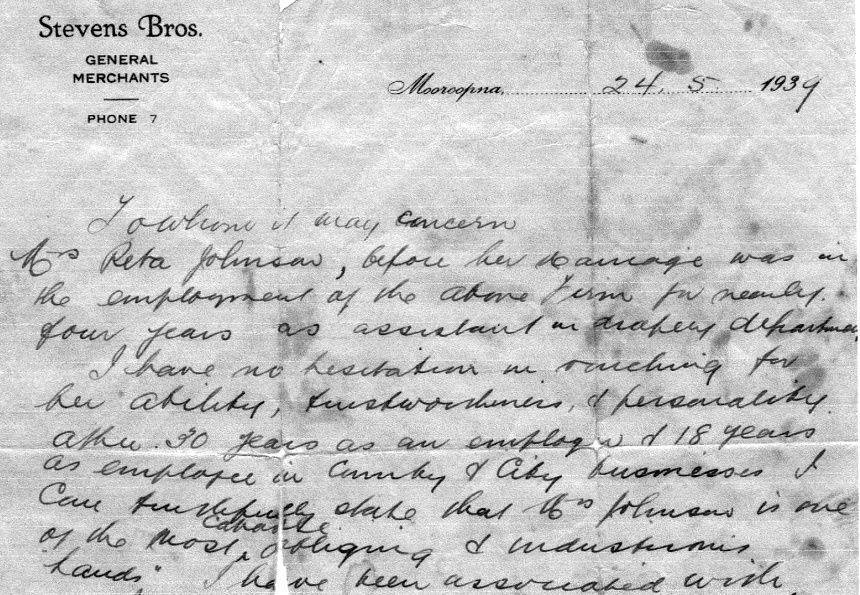 Stevens Bros.
GENERAL
MERCHANTS
PHONE 7
Mooroopna, 24. 5. 1939
To whom it may concern
Mrs Reta Johnson, before her marriage was in
the employment of the above Firm for nearly
four years as assistant in drapery department
I have no hesitation in vouching for
her ability, trustworthiness, & personality.
After 30 years as an employer & 18 years
as employee in Country & City businesses I
can truthfully state that Mrs Johnson is one
of the most capable obliging & industrious
hands". I have been associated with